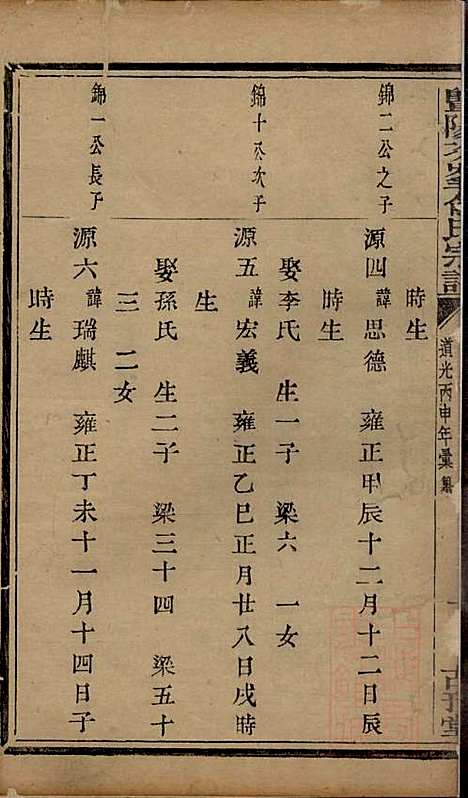 時生
錦二公之子
源四 諱思德 雍正甲辰十二月十二日辰
時生
娶李氏 生一子 梁六 一女
錦十公次子
源五 諱宏義 雍正乙巳正月廿八日戌時
生
娶孫氏 生二子 梁三十四 梁五十
三 二女
錦一公長子
源六 諱瑞麒 雍正丁未十一月十四日子
時生
道光丙申年彙纂